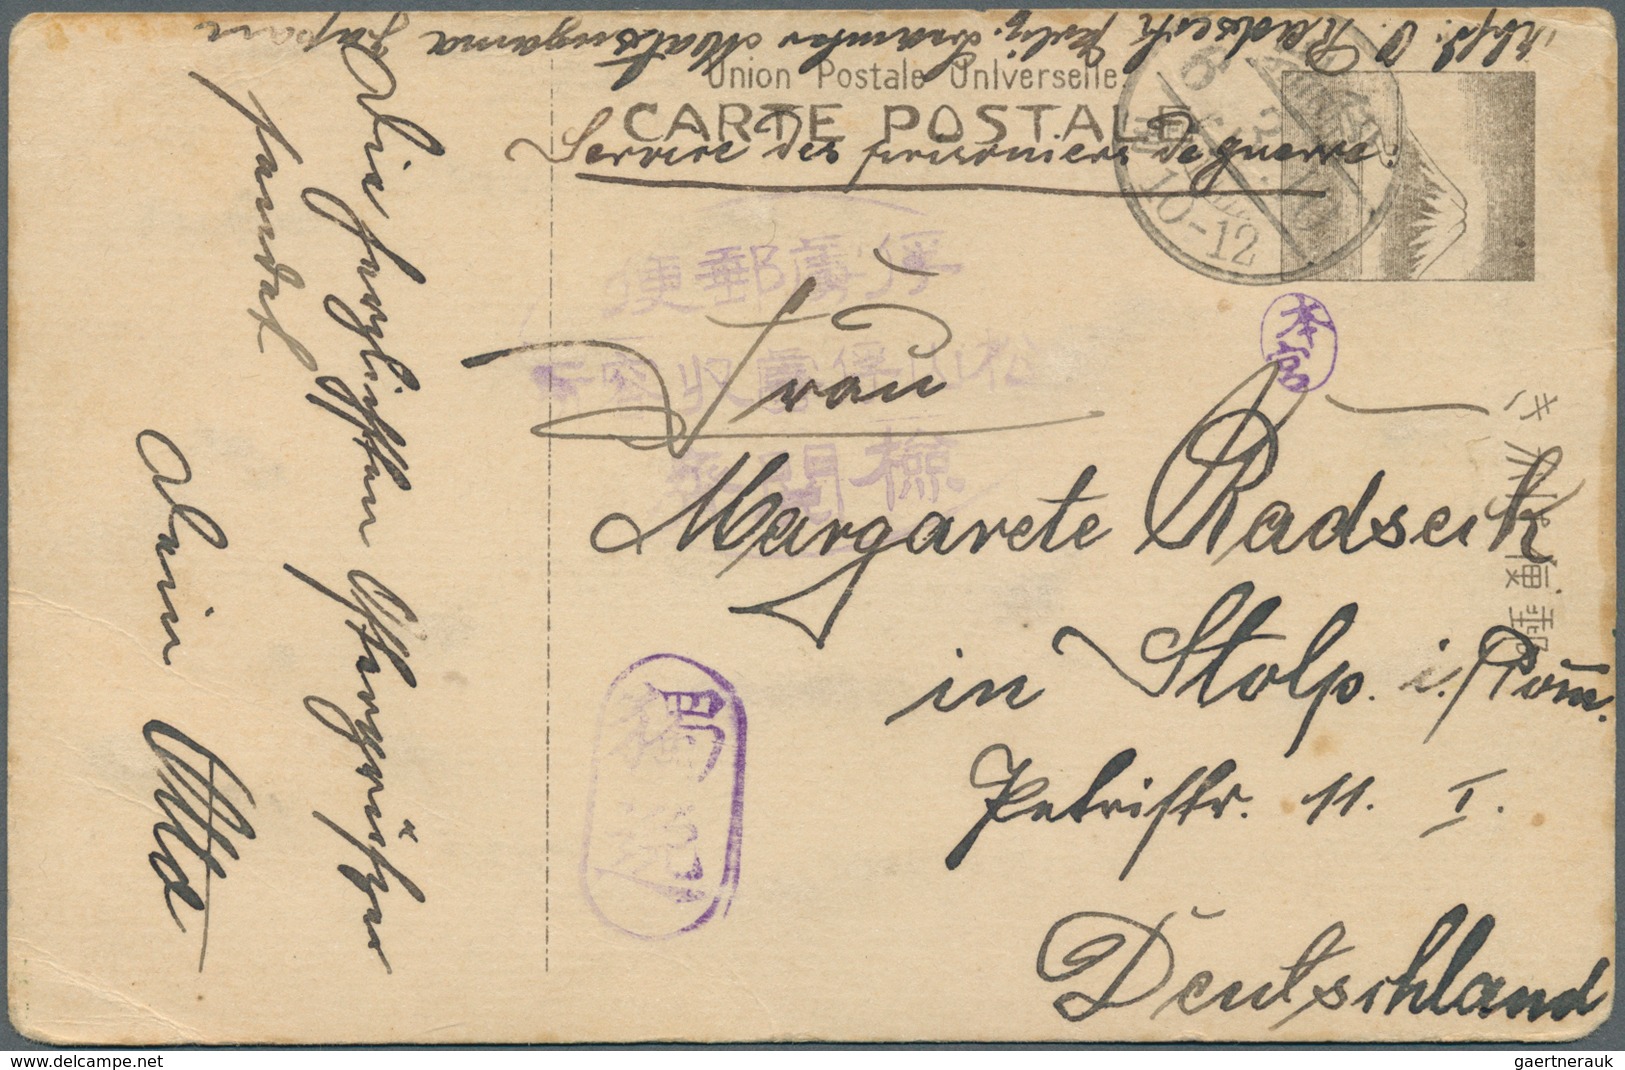 Absd. O. Radseck Poliz. Beamter Matsuyama Japan
Union Postale Universelle.
CARTE POSTALE
Service des prisonniers de guerre
10-12
俘虜郵便
松山俘虜収容所
検閲済
Frau
Margarete Radseck
in Stolp. i./Pom.
Petristr. 11. I.
Deutschland
郵便
Die herzlichsten Ostergrüsse
sendet
Dein Otto
delcampe.net
gaertnerauk